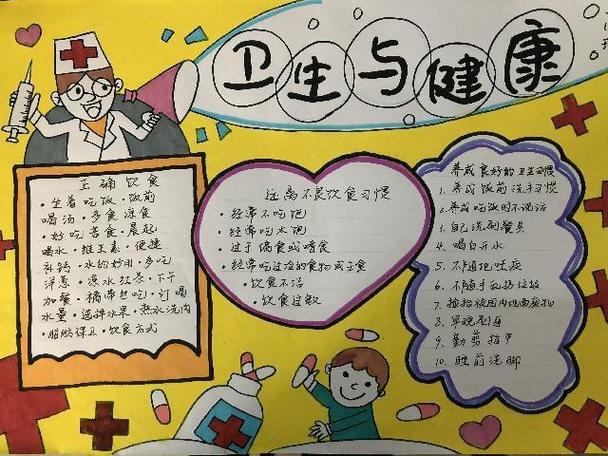 卫生与健康
正确饮食
·坐着吃饭·饭前
喝汤·多食凉食
·好吃苦食·晨起
喝水·维生素·便捷
补钙·水的妙用·多吃
洋葱·凉水红茶·下午
加餐·橘带丝吃·订喝
水量·选择水果·热水洗肉
·脂肪保卫·饮食方式
远离不良饮食习惯
·经常不吃饱
·经常吃太饱
·过于偏食或嗜食
·经常吃过冷的食物或主食
·饮食不洁
·饮食过敏
养成良好的卫生习惯
1. 养成饭前洗手习惯
2. 养成吃饭时不说话
3. 自己洗刷餐具
4. 喝白开水
5. 不随地吐痰
6. 不随手乱扔垃圾
7. 捡拾校园内地面废物
8. 早晚刷牙
9. 勤剪指甲
10. 睡前洗脚